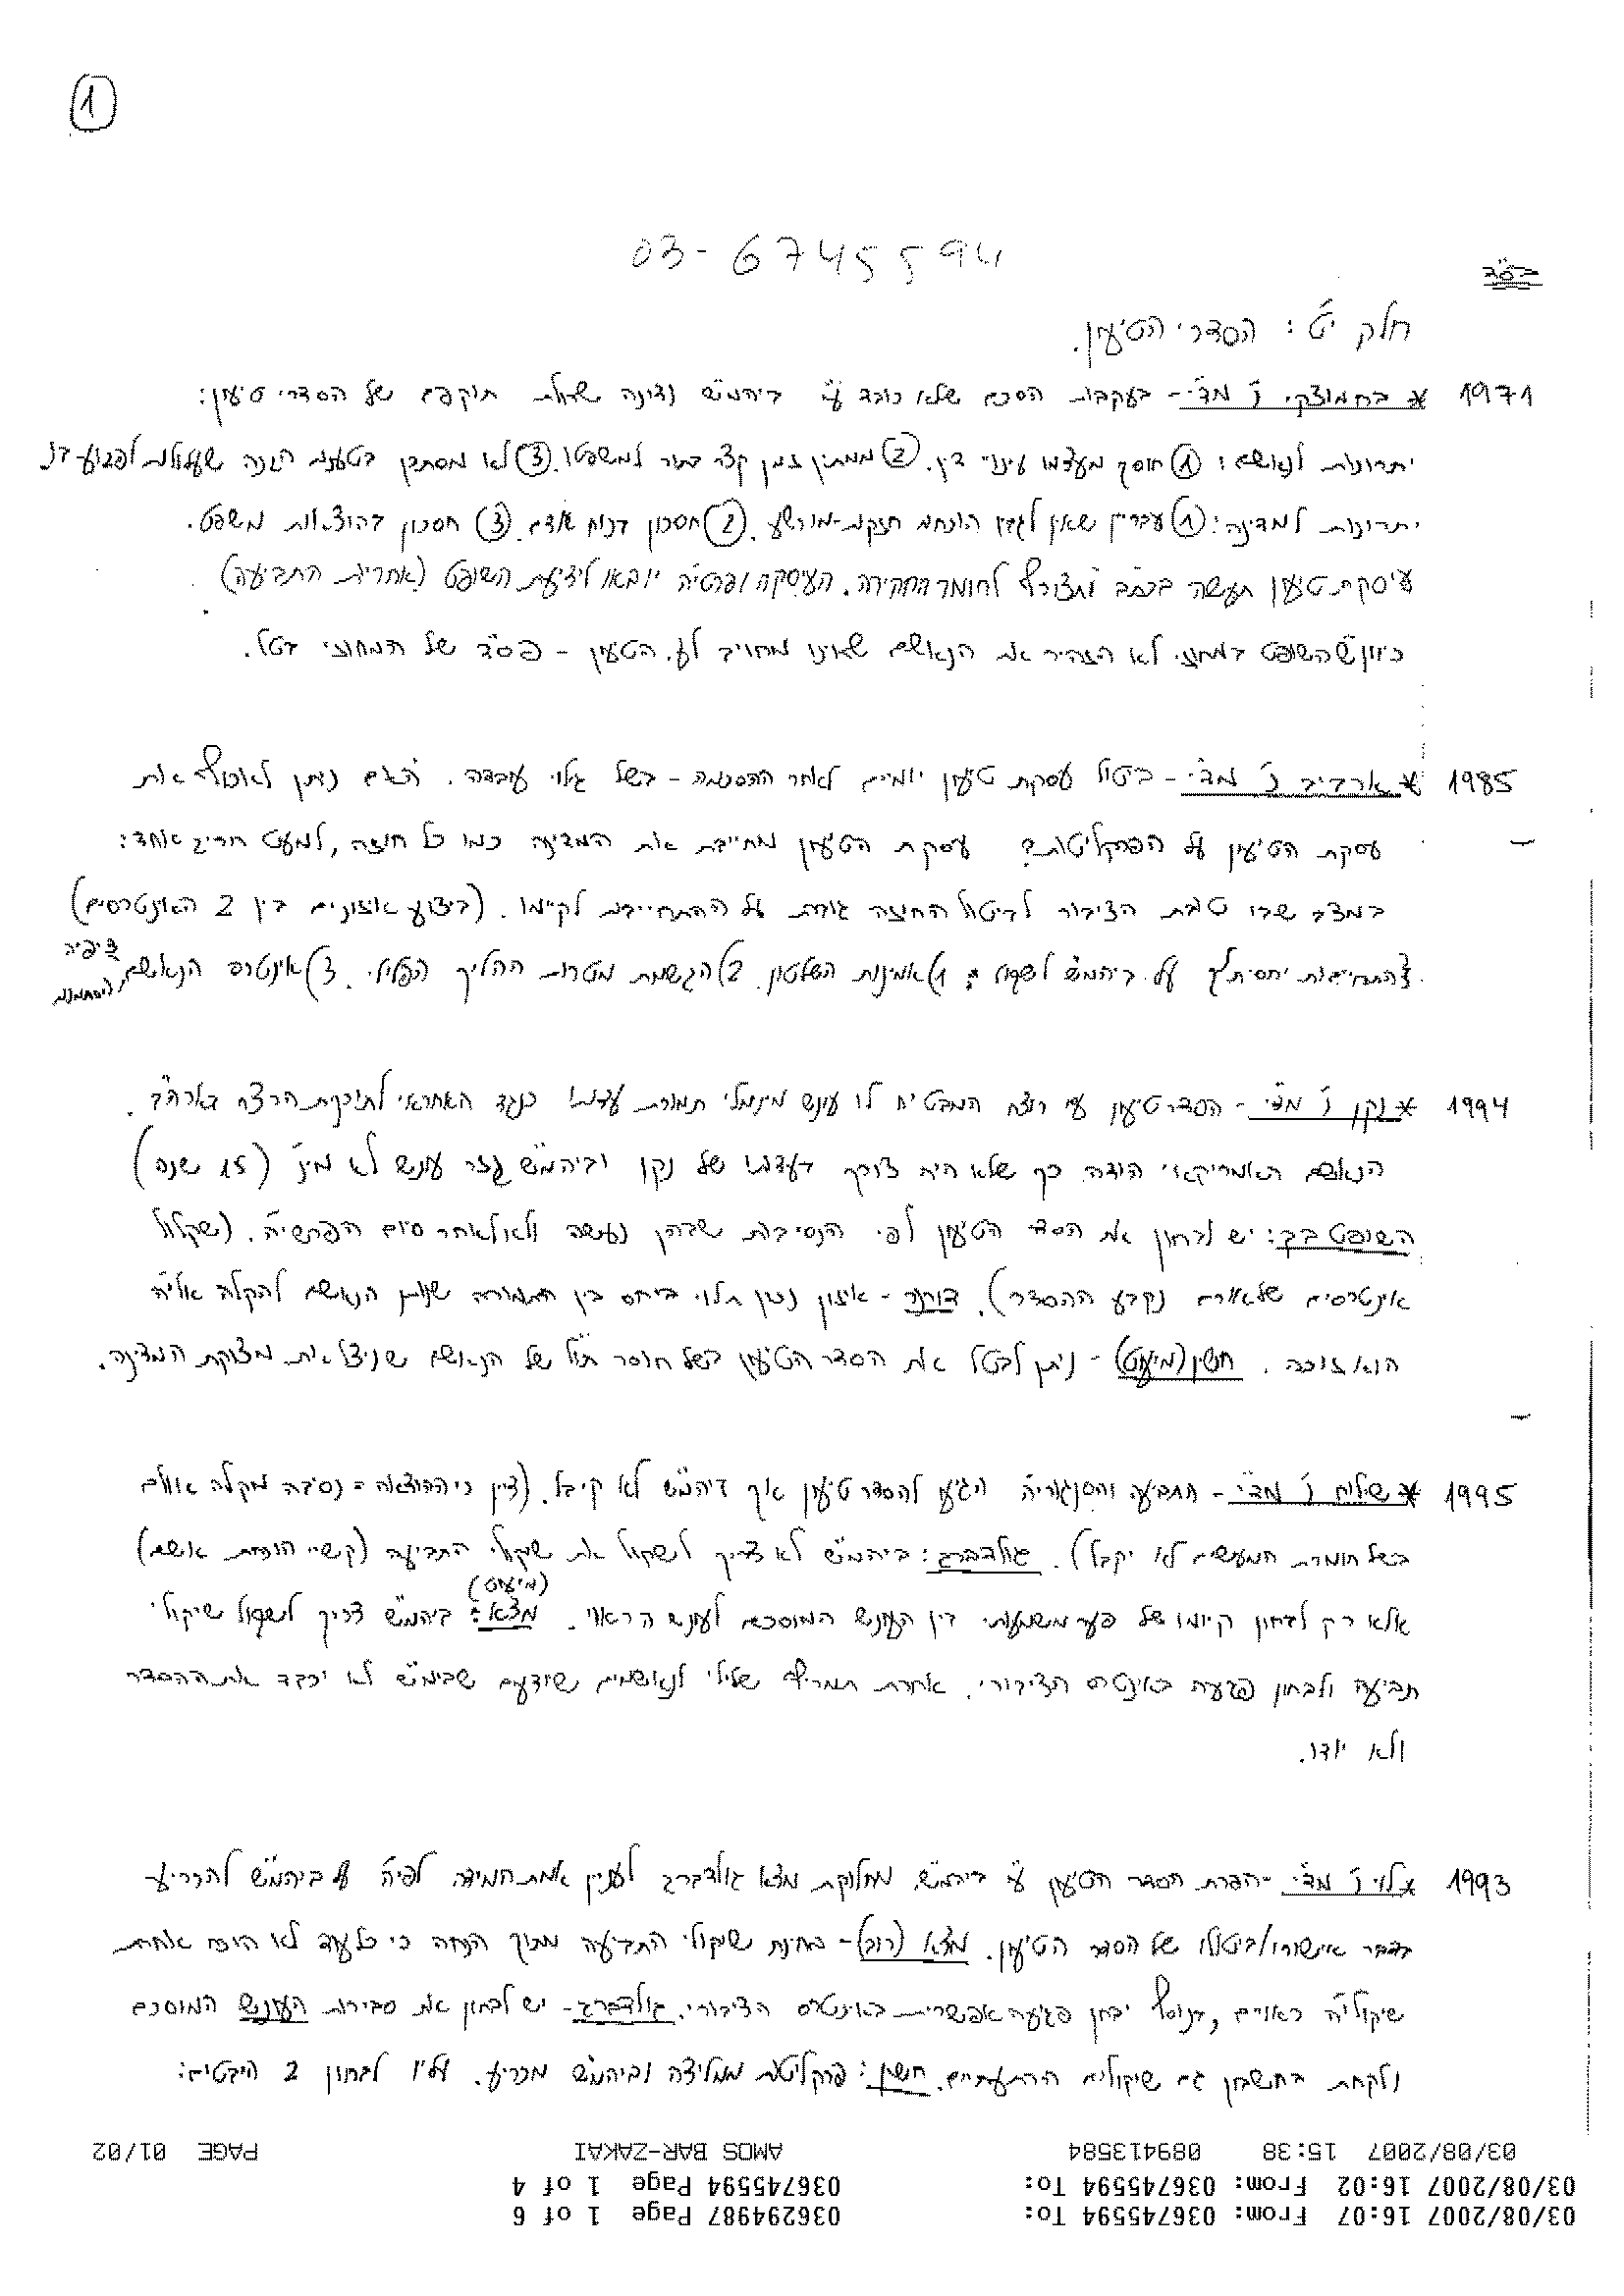 1
03-6745594
בס"ד
חלק י"ט: הסדרי הטיעון.
1971 * בחמוצקי נ' מד"י - בעקבות הסכם שלא כובד ע"י ביהמ"ש נדונה שאלת תוקפם של הסדרי טיעון:
יתרונות לנאשם: (1) חוסך מעצמו עינוי דין. (2) ממתין זמן קצר בתור למשפטו. (3) לא מסתבך בטענות הגנה שעלולות לפגוע בו
יתרונות למדינה: (1) עבריין שאין לגביו הוכחה חזקה-מורשע. (2) חסכון בכוח אדם. (3) חסכון בהוצאות משפט.
עיסקת טיעון תעשה בכתב ותצורף לחומר החקירה. העיסקה ופרטיה יובאו לידיעת השופט (אחרית התביעה)
כיוון שהשופט במחוזי לא הזהיר את הנאשם שאינו מחויב לע. הטיעון - פס"ד של המחוזי בטל.
1985 * ארביב נ' מד"י - ביטול עסקת טיעון יומיים לאחר ההסכמה - בשל גילוי עובדה. האם ניתן לאכוף את
עסקת הטיעון על הפרקליטות? עסקת הטיעון מחייבת את המדינה כמו כל חוזה, למעט חריג אחד:
במצב שבו טובת הציבור לביטול החוזה גוברת על ההתחייבות לקיימו. (ביצוע איזונים בין 2 האינטרסים)
ההתחייבות יחסית לכך על ביהמ"ש לשקול: 1) אמינות השלטון. 2) הגשמת מטרות ההליך הפלילי. 3) אינטרס הנאשם, ציפיה
והסתמכות
1994 * נקן נ' מד"י - הסדר טיעון עם רוצח המבטיח לו עונש מינימלי תמורת עדותו כנגד האחראי לחניקת הרצח בארה"ב.
הנאשם האמריקאי הודה כך שלא היה צורך בעדותו של נקן וביהמ"ש גזר עונש לא מינ' (15 שנה)
השופט בך: יש לבחון את הסדר הטיעון לפי הנסיבות שבהן נעשה ולא לאחר סיום הפרשיה. (שקלול
אינטרסים שלאורם נקבע ההסדר). דורנר - איזון נכון תלוי ביחס בין התמורה שנותן הנאשם להקלה אליה
הוא זוכה. חשין (מיעוט) - ניתן לבטל את הסדר הטיעון בשל חוסר תו"ל של הנאשם שניצל את מצוקת המדינה.
1995 * שילוח נ' מד"י - התביעה והסנגוריה הגיעו להסדר טיעון אך ביהמ"ש לא קיבל. (ציין כי ההודאה = נסיבה מקלה אולם
בשל חומרת המעשים לא יקבל). גולדברג: ביהמ"ש לא צריך לשקול את שיקולי התביעה (קשיי הוכחת אשם)
אלא רק לבחון קיומו של פער משמעותי בין העונש המוסכם לעונש הראוי. מצא (מיעוט): ביהמ"ש צריך לשקול שיקולי
תביעה ולבחון פגיעה באינטרס הציבורי. אחרת תמריץ שלילי לנאשמים שיודעים שבימ"ש לא יכבד את ההסדר
ולא יודו.
1993 * לוי נ' מד"י - הפרת הסדר הטיעון ע"י ביהמ"ש. מחלוקת מצא גולדברג לעניין אמת המידה לפיה על ביהמ"ש להכריע
בדבר אישורו/ביטולו של הסדר הטיעון. מצא (רוב) - בחינת שיקולי התביעה מתוך הנחה כי כל עוד לא הוכח אחרת
שיקוליה ראויים, בנוסף יבחן פגיעה אפשרית באינטרס הציבורי. גולדברג - יש לבחון את סבירות העונש המוסכם
ולקחת בחשבון גם שיקולים הרתעתיים. חשין: פרקליטות ממליצה וביהמ"ש מכריע. עליו לבחון 2 היבטים:
03/08/2007 15:38 089413584 AMOS BAR-ZAKAI PAGE 01/02
03/08/2007 16:02 From: 036745594 To: 036745594 Page 1 of 4
03/08/2007 16:07 From: 036745594 To: 036294987 Page 1 of 6